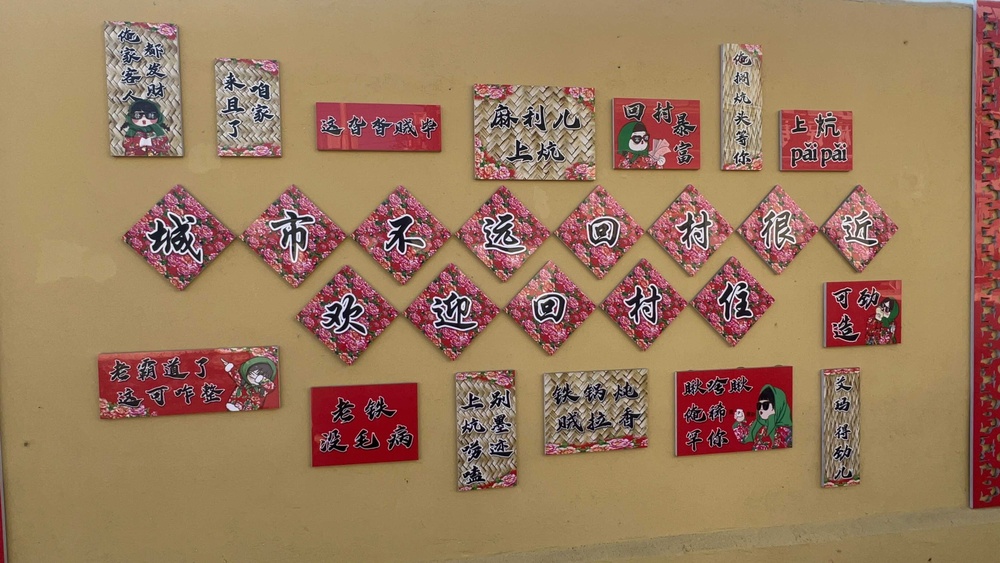 俺家客人
都发财
咱家
来且了
这贼
麻利儿
上炕
回村暴
富
俺搁炕头等你
上炕
pǎi pǎi
城市不远回村很近
欢迎回村住
可劲
造
老霸道了
这可咋整
老铁
没毛病
别墨迹
上炕唠嗑
铁锅炖
贼拉香
瞅啥瞅
俺稀
罕你
得劲儿